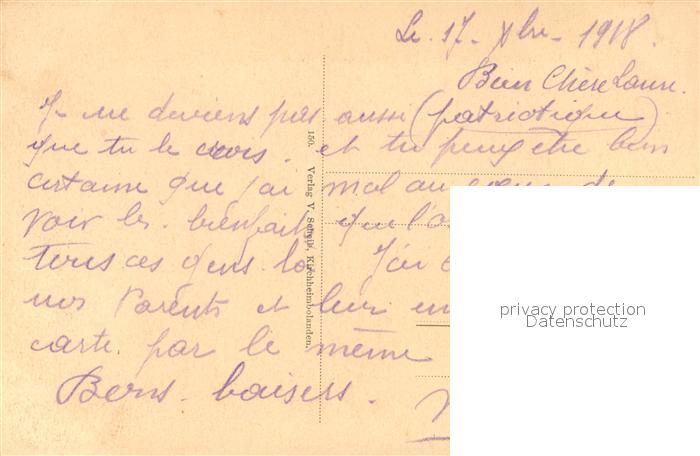 Le 17 - Xbre - 1918.
Bien Chère
Je ne deviens pas aussi (patriotique)
que tu le crois. et tu peux être bien
certaine que j'ai mal au de
voir les bienfaits que l'o
tous ces gens là J'ai
nos Parents et leur en
carte par le même
Bons baisers.
150. Verlag V. Scheib, Kirchheimbolanden.
privacy protection
Datenschutz